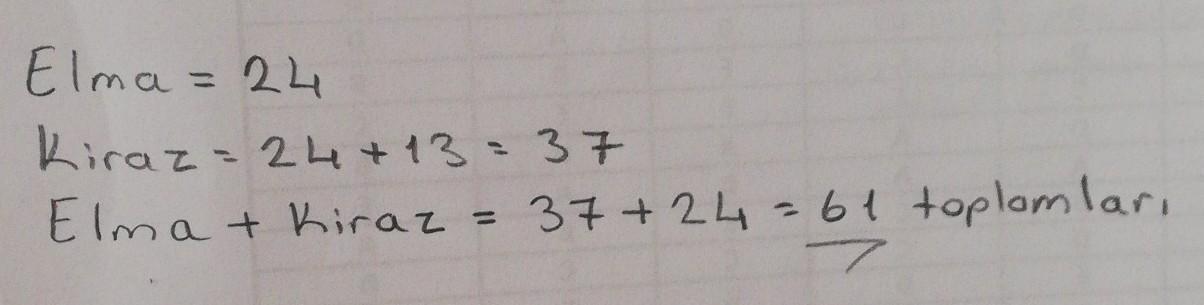 Elma = 24
Kiraz = 24 + 13 = 37
Elma + Kiraz = 37 + 24 = 61 toplamları